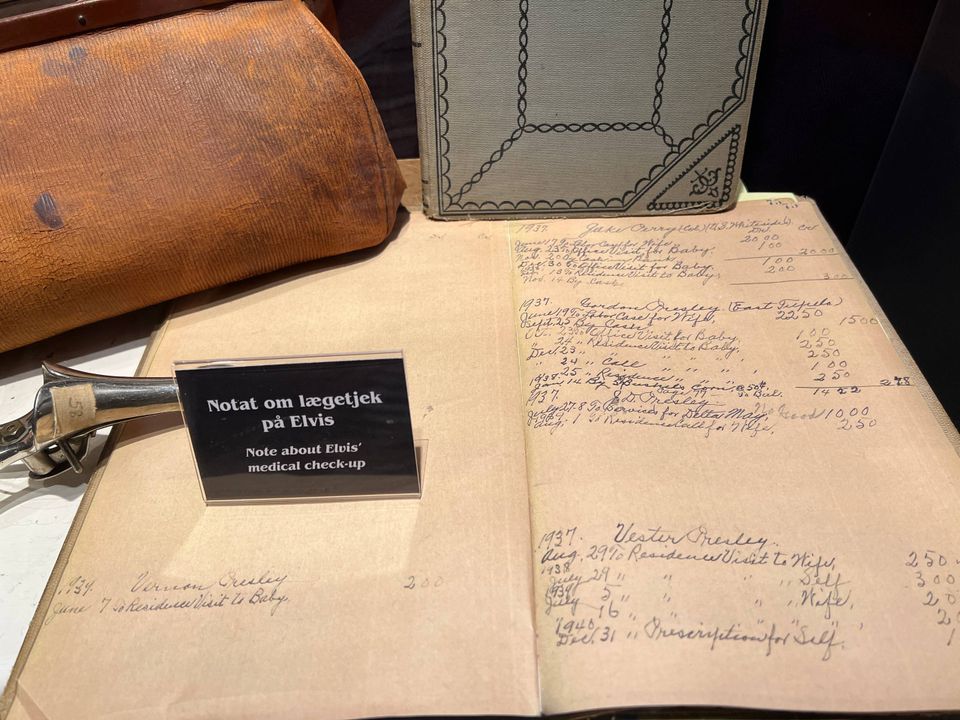 Notat om lægetjek
på Elvis
Note about Elvis'
medical check-up
1937. Vernon Presley 200
June 7 To Residence Visit to Baby.
1937. Jake Perry
June 17 for Wife 2000
Aug. 23 To Office Visit for Baby. 100 2000
Nov. 20 By Cash
Dec. 30 To Office Visit for Baby. 100
Residence Visit to Baby, 200
Nov. 14 By Cash 300
1937. Gordon Presley. (East Tupelo)
June 19 To Labor Case for Wife, 2250
Sept. 25 By Cash 1500
23 To Office Visit for Baby. 100
" 24 " Residence Visit to Baby, 250
Dec. 23 " " " " 250
" 24 " Call " " 100
" 25 " Residence " " 250
1938 Jan. 14 By 5 Bushels Corn @ 50¢
1937. J.D. Presley.
July 27 To Services for Delta May, 1000
Aug. 1 " Residence Call for Wife, 250
1937. Vester Presley.
Aug. 29 To Residence Visit to Wife, 250
1938
July 29 " " " " Self 300
1939
July 5 " " " " Wife,
" 16 " " " "
1940
Dec. 31 " Prescription for Self.